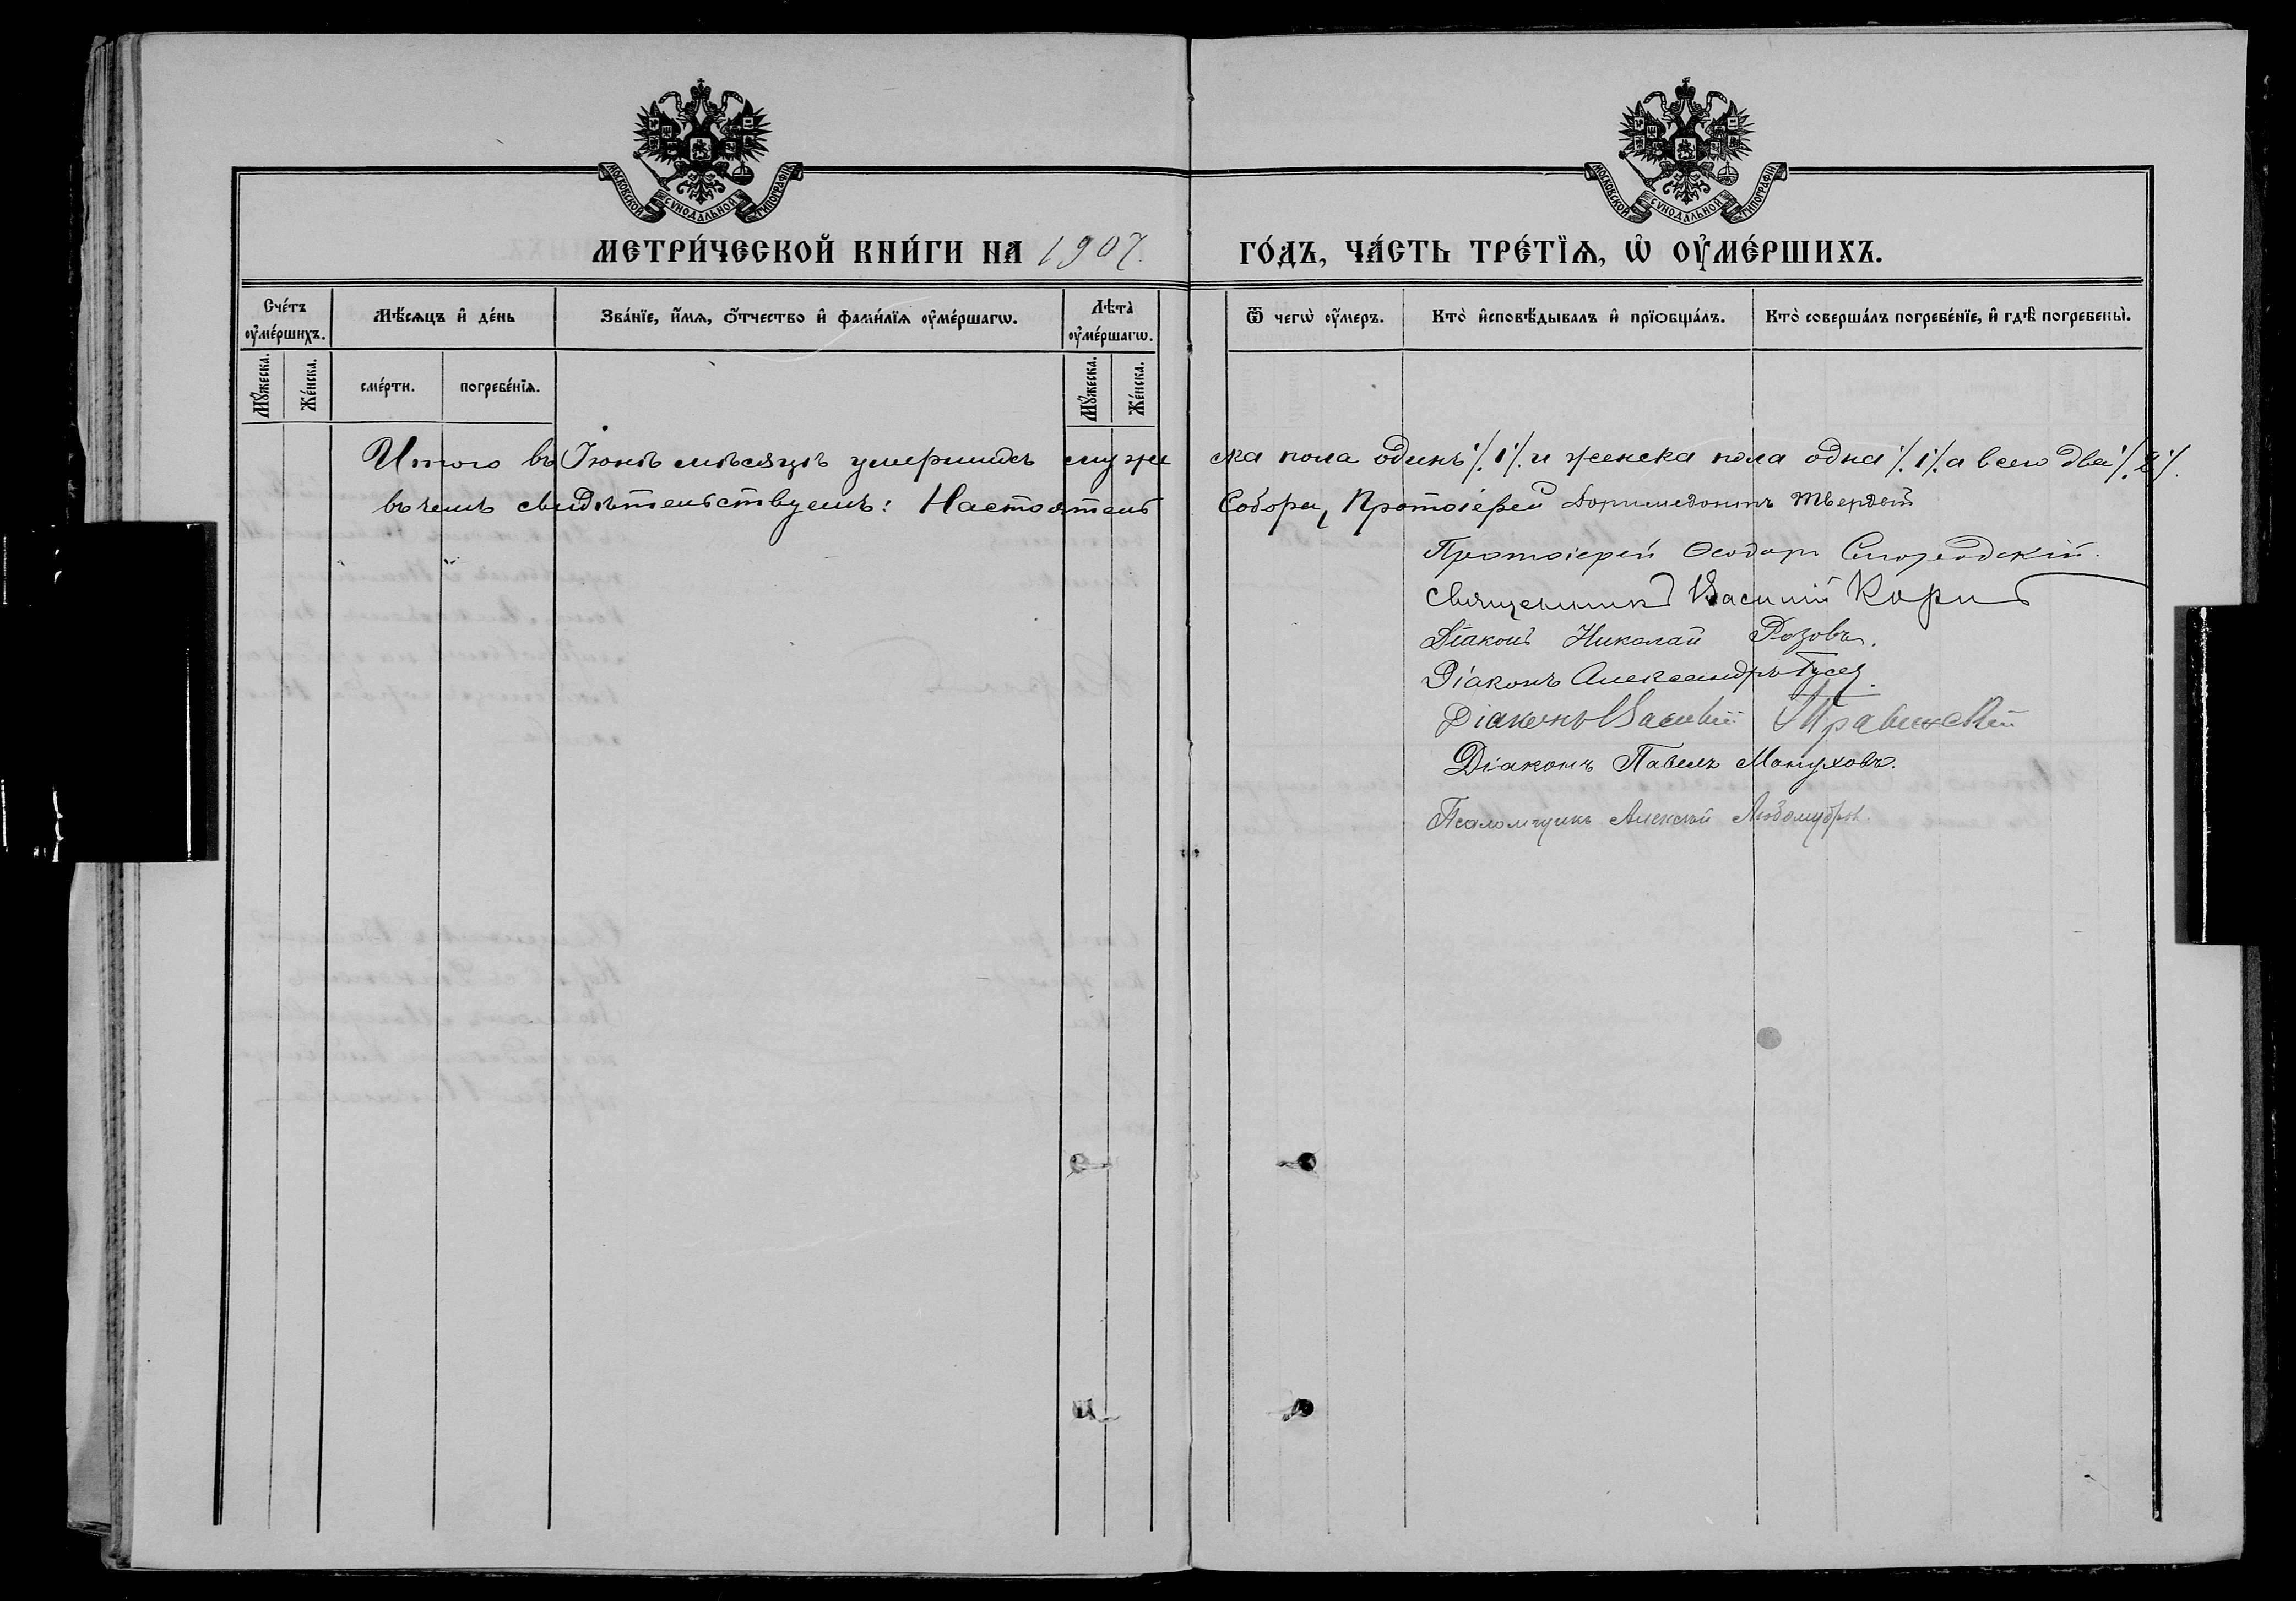 МОСКОВСКОЙ СѴНОДАЛЬНОЙ ТИПОГРАФІИ
МОСКОВСКОЙ СѴНОДАЛЬНОЙ ТИПОГРАФІИ
МЕТРИ́ЧЕСКОЙ КНИ́ГИ НА 1907. ГО́ДЪ, ЧА́СТЬ ТРЕ́ТІѦ, Ѡ ОУ҆МЕ́РШИХЪ.
Сче́тъ оу҆ме́ршихъ.
Мѣ́сѧцъ и҆ де́нь
Зва́нїе, и҆́мѧ, о҆́тчество и҆ фами́лїѧ оу҆ме́ршагѡ.
Лѣта̀ оу҆ме́ршагѡ.
Ѿ чегѡ̀ оу҆́меръ.
Кто̀ и҆сповѣ́дывалъ и҆ прїобща́лъ.
Кто̀ соверша́лъ погребе́нїе, и҆ гдѣ̀ погребены̀.
Мꙋ́жеска.
Же́нска.
сме́рти.
погребе́нїѧ.
Мꙋ́жеска.
Же́нска.
Итого въ Іюнѣ мѣсяцѣ умершихъ мужеска пола одинъ ⁒ 1 ⁒ и женска пола одна ⁒ 1 ⁒ а всего два ⁒ 2 ⁒.
въ чемъ свидѣтельствуемъ: Настоятель Собора, Протоіерей Доримедонтъ Твердый
Протоіерей Ѳеодоръ
Священникъ Василій Корнъ
Діаконъ Николай Розовъ.
Діаконъ Александръ Гусев.
Діаконъ Василій
Діаконъ Павелъ Монуховъ.
Псаломщикъ Алексѣй Любомудров.